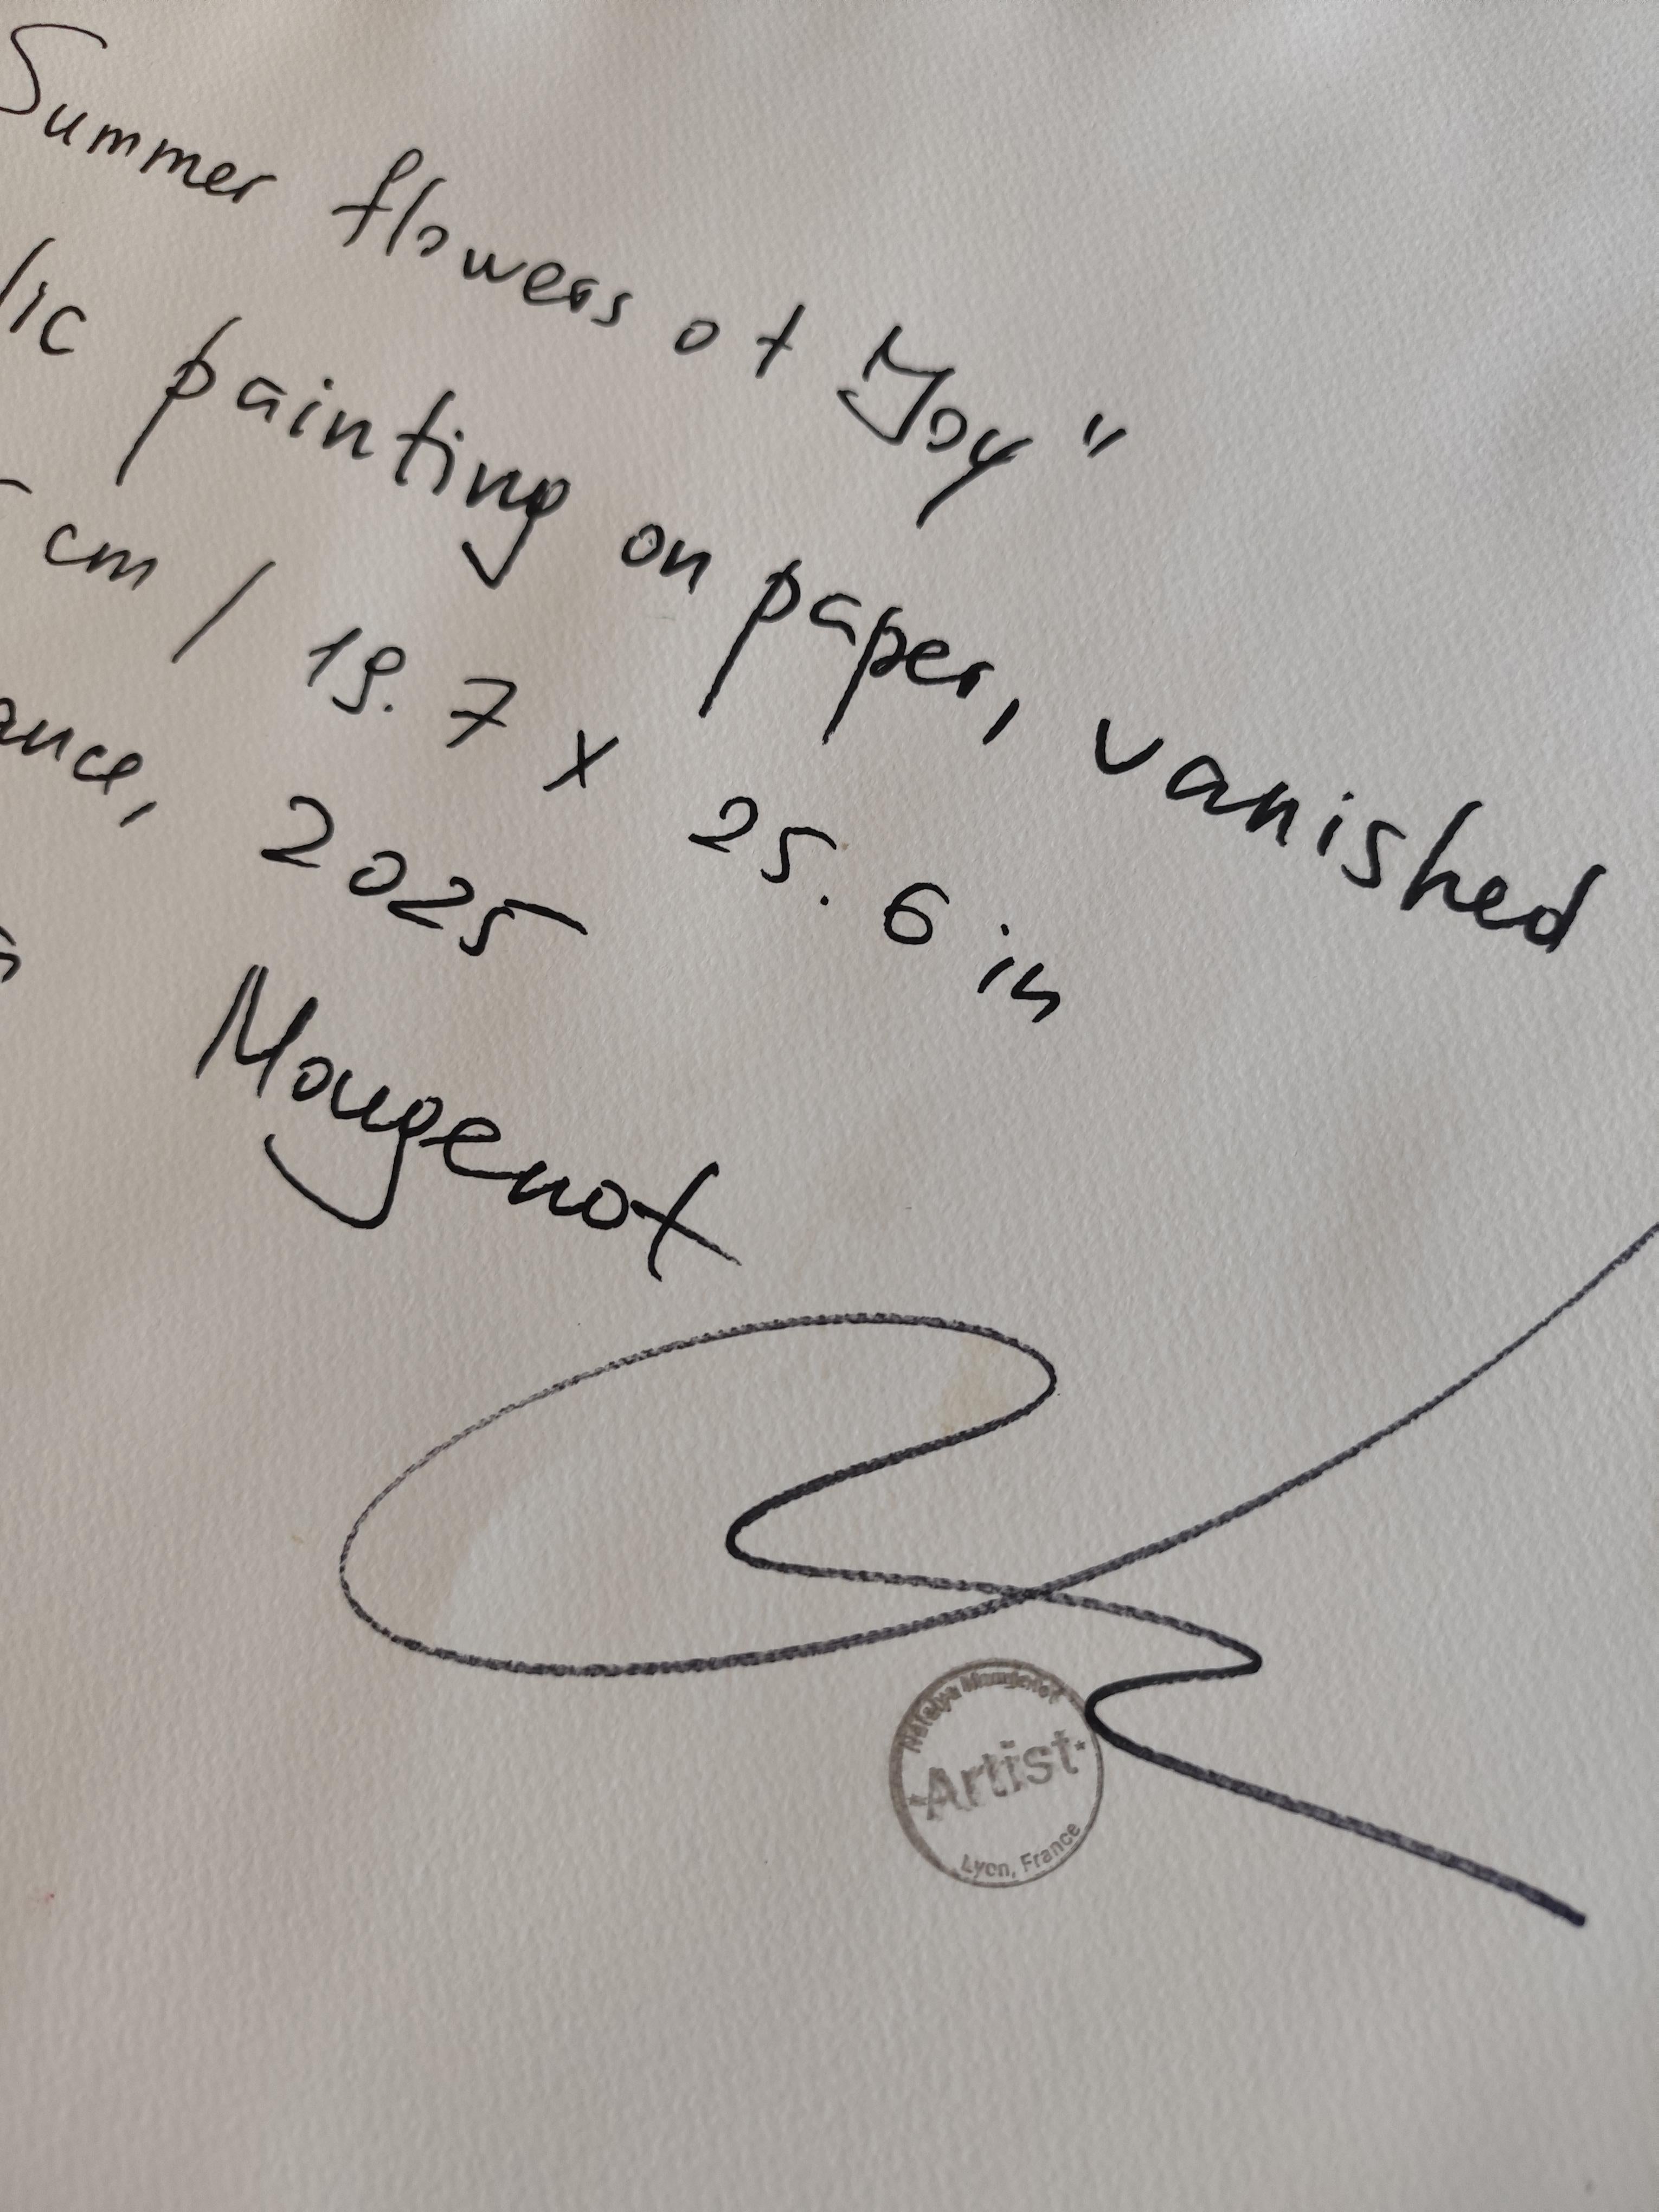 Summer flowers of Joy"
lic painting on paper, vanished
cm / 19.7 x 25.6 in
ance, 2025
Mougenot
Natalya Mougenot
Artist
Lyon, France